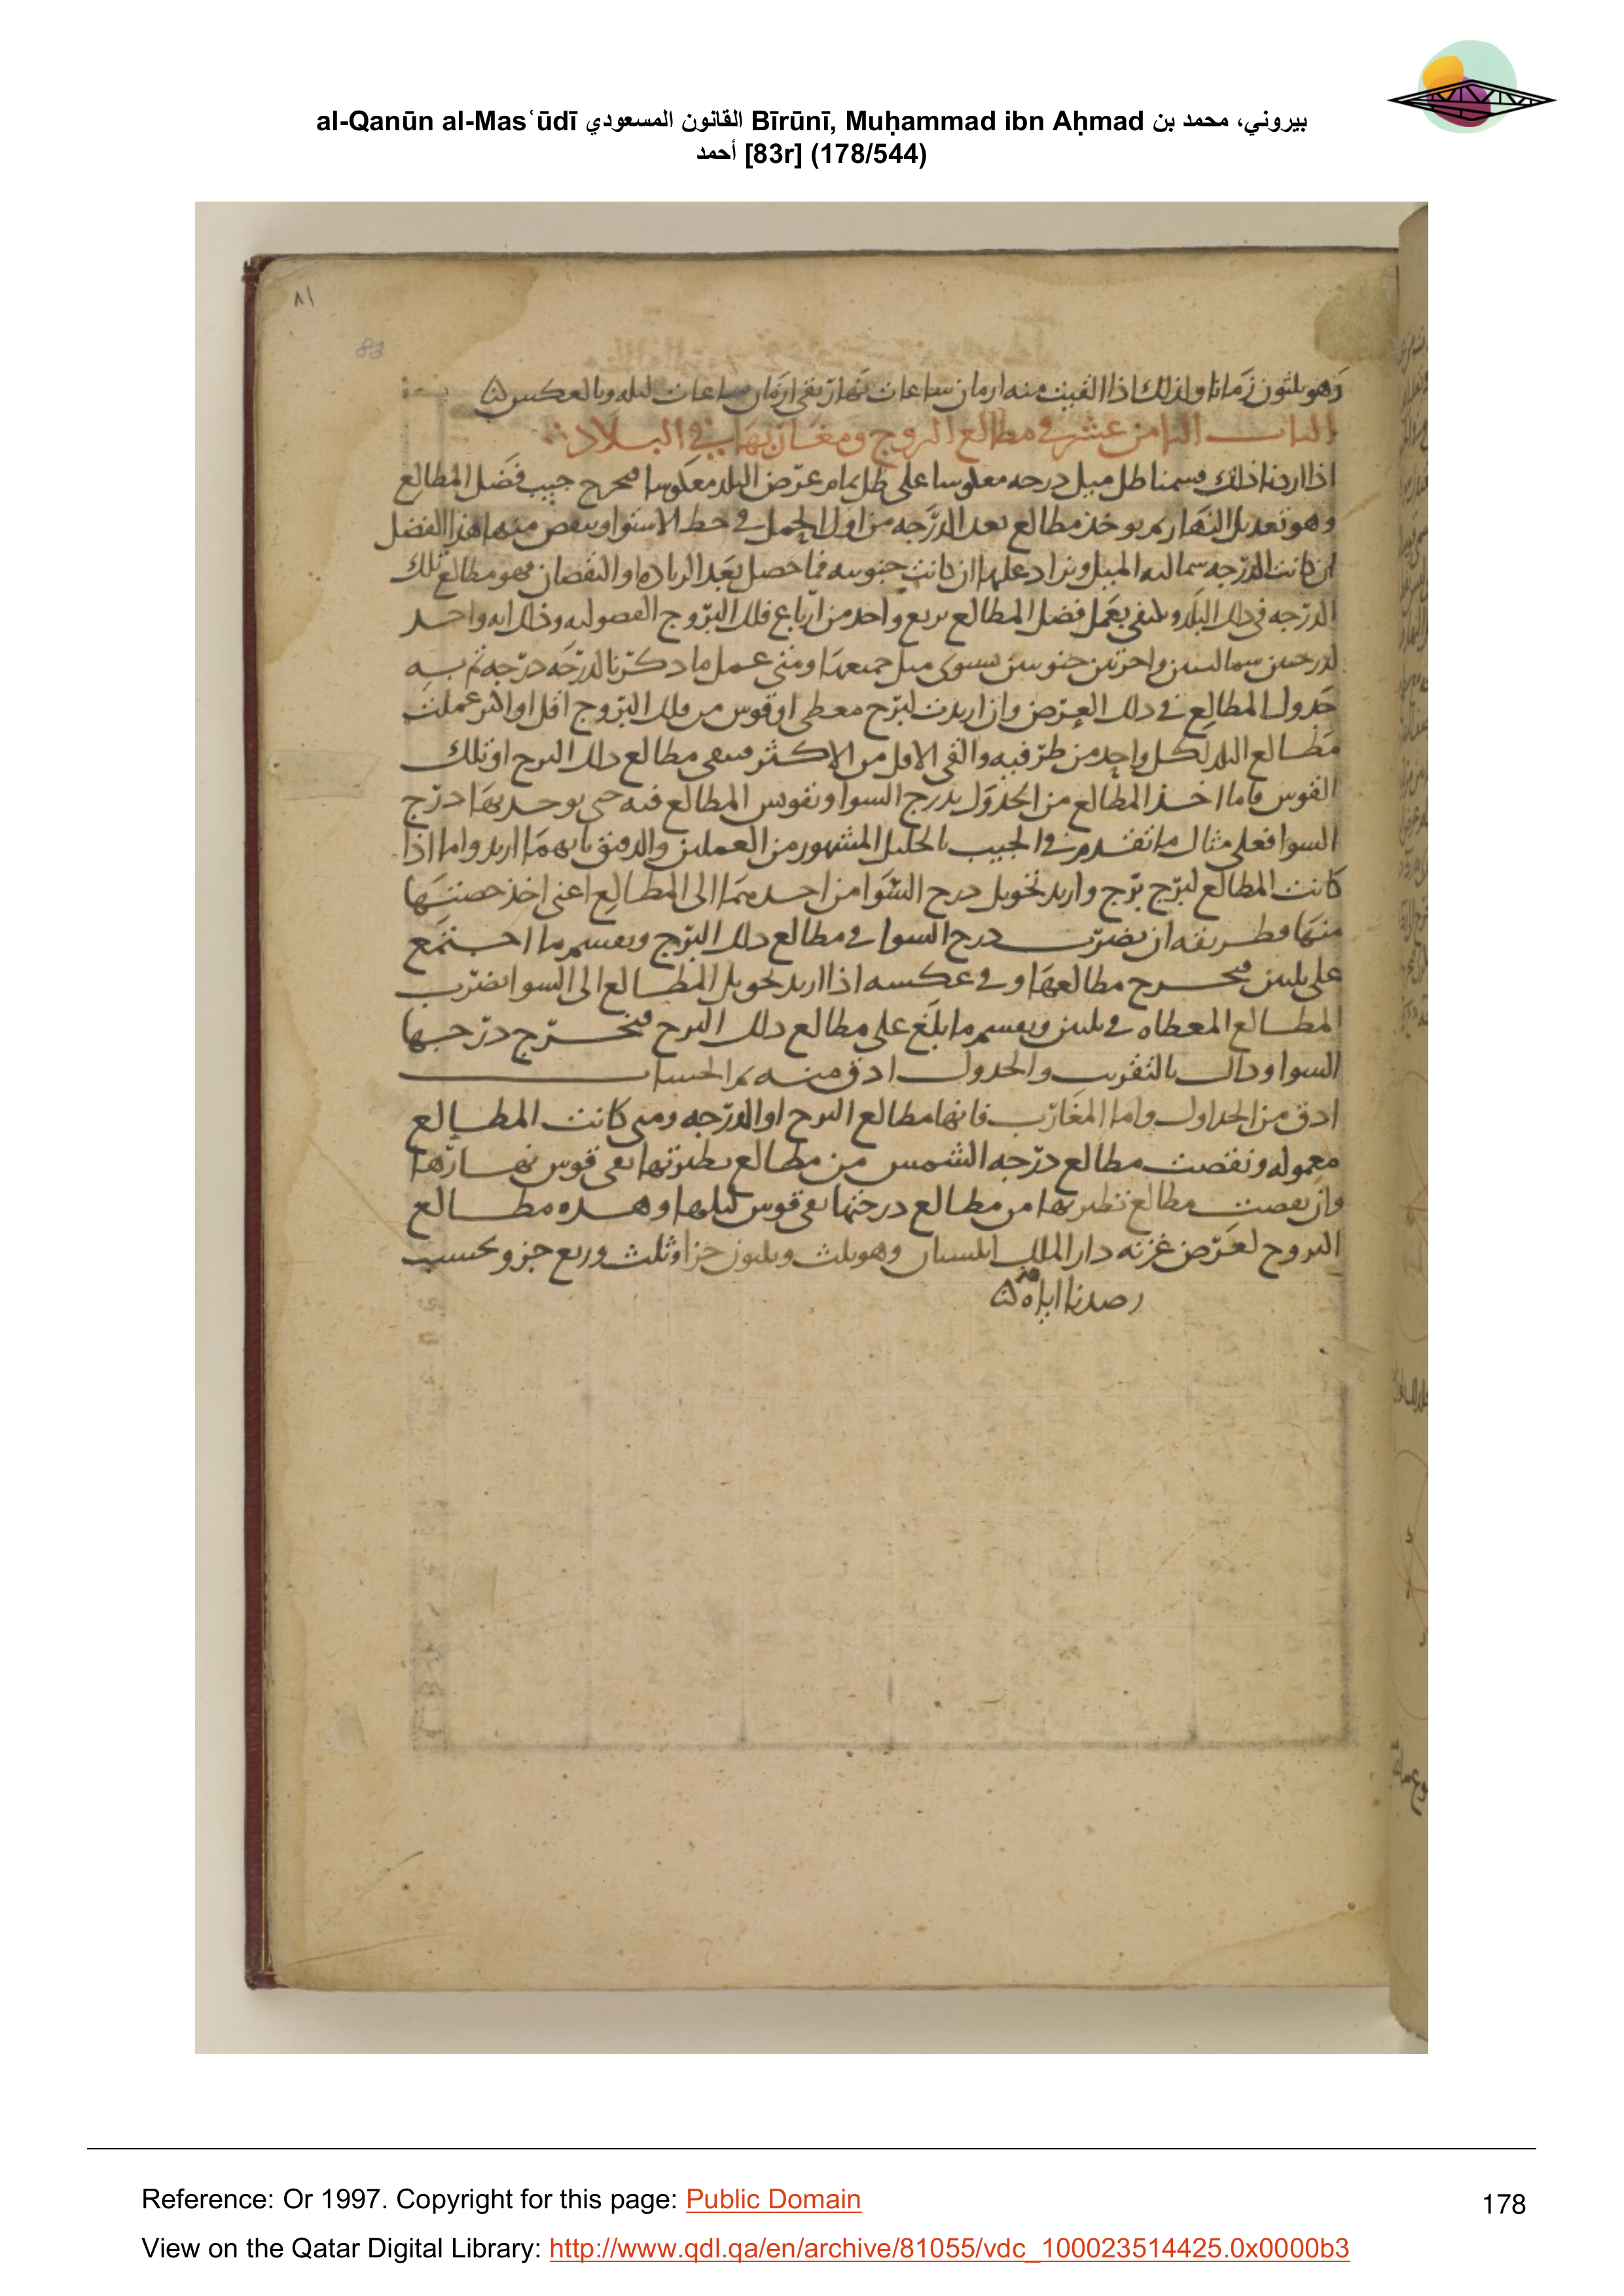 al-Qanūn al-Masʿūdī القانون المسعودي Bīrūnī, Muḥammad ibn Aḥmad بيروني، محمد بن
أحمد [83r] (178/544)
٨١
83
وهو ثلثون زمانا ولذلك اذا القيت منه ازمان ساعات نهار بقى ازمان ساعات ليله وبالعكس
الباب الثامن عشر في مطالع البروج ومغاربها في البلاد
اذا اردنا ذلك قسمنا ظل ميل درجه معكوسا على ظل تمام عرض البلد معكوسا فيخرج جيب فضل المطالع
وهو تعديل النهار ثم يوخذ مطالع بعد الدرجه من اول الحمل في خط الاستوا وينقص منها هذا الفضل
ان كانت الدرجه شماليه الميل ويزاد عليها ان كانت جنوبيه فما حصل بعد الزياده او النقصان فهو مطالع تلك
الدرجه في ذلك البلد ويكتفى بعمل فضل المطالع بربع واحد من ارباع فلك البروج وذلك انه واحد
لدرجتين شماليتين واخرتين جنوبيتين ميل جميعها ومتى عمل ما ذكرنا لدرجه درجه تم به
جدول المطالع في ذلك العرض وان اريدت لبرج معطى او قوس من فلك البروج اقل او اكثر عملت
مطالع البلد لكل واحد من طرفيه والقى الاقل من الاكثر فيبقى مطالع ذلك البرج او تلك
القوس فاما اخذ المطالع من الجدول بدرج السوا وتقويس المطالع فيه حتى يوجد بها درج
السوا فعلى مثال ما تقدم في الجيب المشهور من العملين والدقيق بايهما اريد واما اذا
كانت المطالع لبرج برج واريد تحويل درج السوا من احدهما الى المطالع اعنى اخذ حصتها
منها فطريقه ان يضرب درج السوا في مطالع ذلك البرج ويقسم ما اجتمع
على ثلثين فيخرج مطالعها وفي عكسه اذا اريد تحويل المطالع الى السوا يضرب
المطالع المعطاه في ثلثين ويقسم ما بلغ على مطالع ذلك البرج فيخرج درجها
السوا وذلك بالتقريب والجدول ادق منه ثم الحساب
ادق من الجداول واما المغارب فانها مطالع البرج او الدرجه ومتى كانت المطالع
معموله ونقصت مطالع درجه الشمس من مطالع نظيرتها بقى قوس نهارها
وان نقصت مطالع نظيرتها من مطالع درجتها بقى قوس ليلها وهذه مطالع
البروج لعرض غزنه دار الملك وهو ثلث وثلثون جزا وثلث وربع جزو بحسب
رصدنا اياه
Reference: Or 1997. Copyright for this page: Public Domain
178
View on the Qatar Digital Library: http://www.qdl.qa/en/archive/81055/vdc_100023514425.0x0000b3